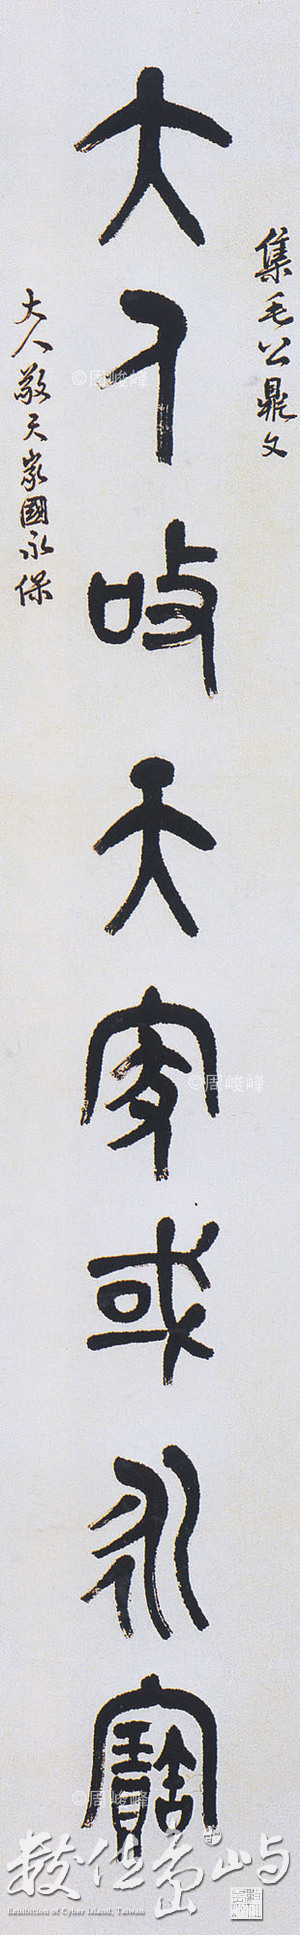 集毛公鼎文
大人敬天家或永寶
大人敬天家國永保
©周峻峰
©周峻峰
©周峻峰
數位島嶼
Exhibition of Cyber Island, Taiwan